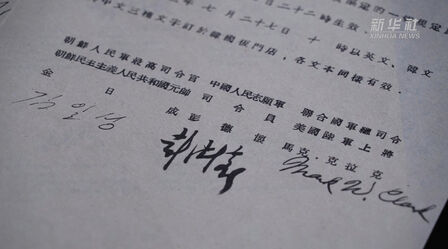 新华社
XINHUA NEWS
二十二時生效。
年 七 月 二十七 日 十 時以英文、韓文
中文三種文字訂於韓國板門店,各文本同樣有效。
朝鮮人民軍最高司令官 中國人民志願軍 聯合國軍總司令
朝鮮民主主義人民共和國元帥 司令員 美國陸軍上將
金日成 彭德懷 馬克·克拉克
김일성 彭德怀 Mark W. Clark